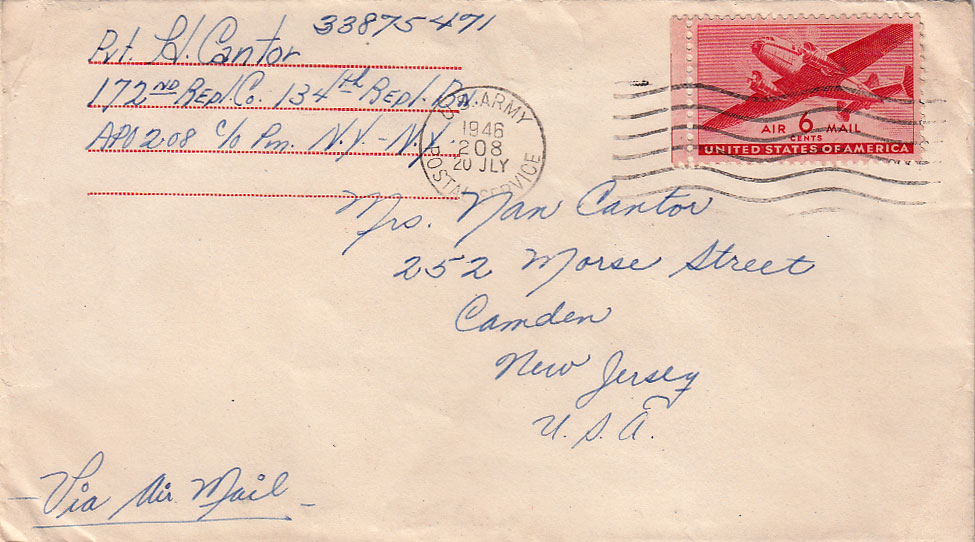 33875471
Pvt. H. Cantor
172ND Repl. Co. 134th Repl. Bn.
APO 208 c/o Pm. N.Y. - N.Y.
U.S. ARMY
1946
208
20 JLY
POSTAL SERVICE
AIR 6 MAIL
CENTS
UNITED STATES OF AMERICA
Mrs. Nan Cantor
252 Morse Street
Camden
New Jersey
U.S.A.
- Via Air Mail -